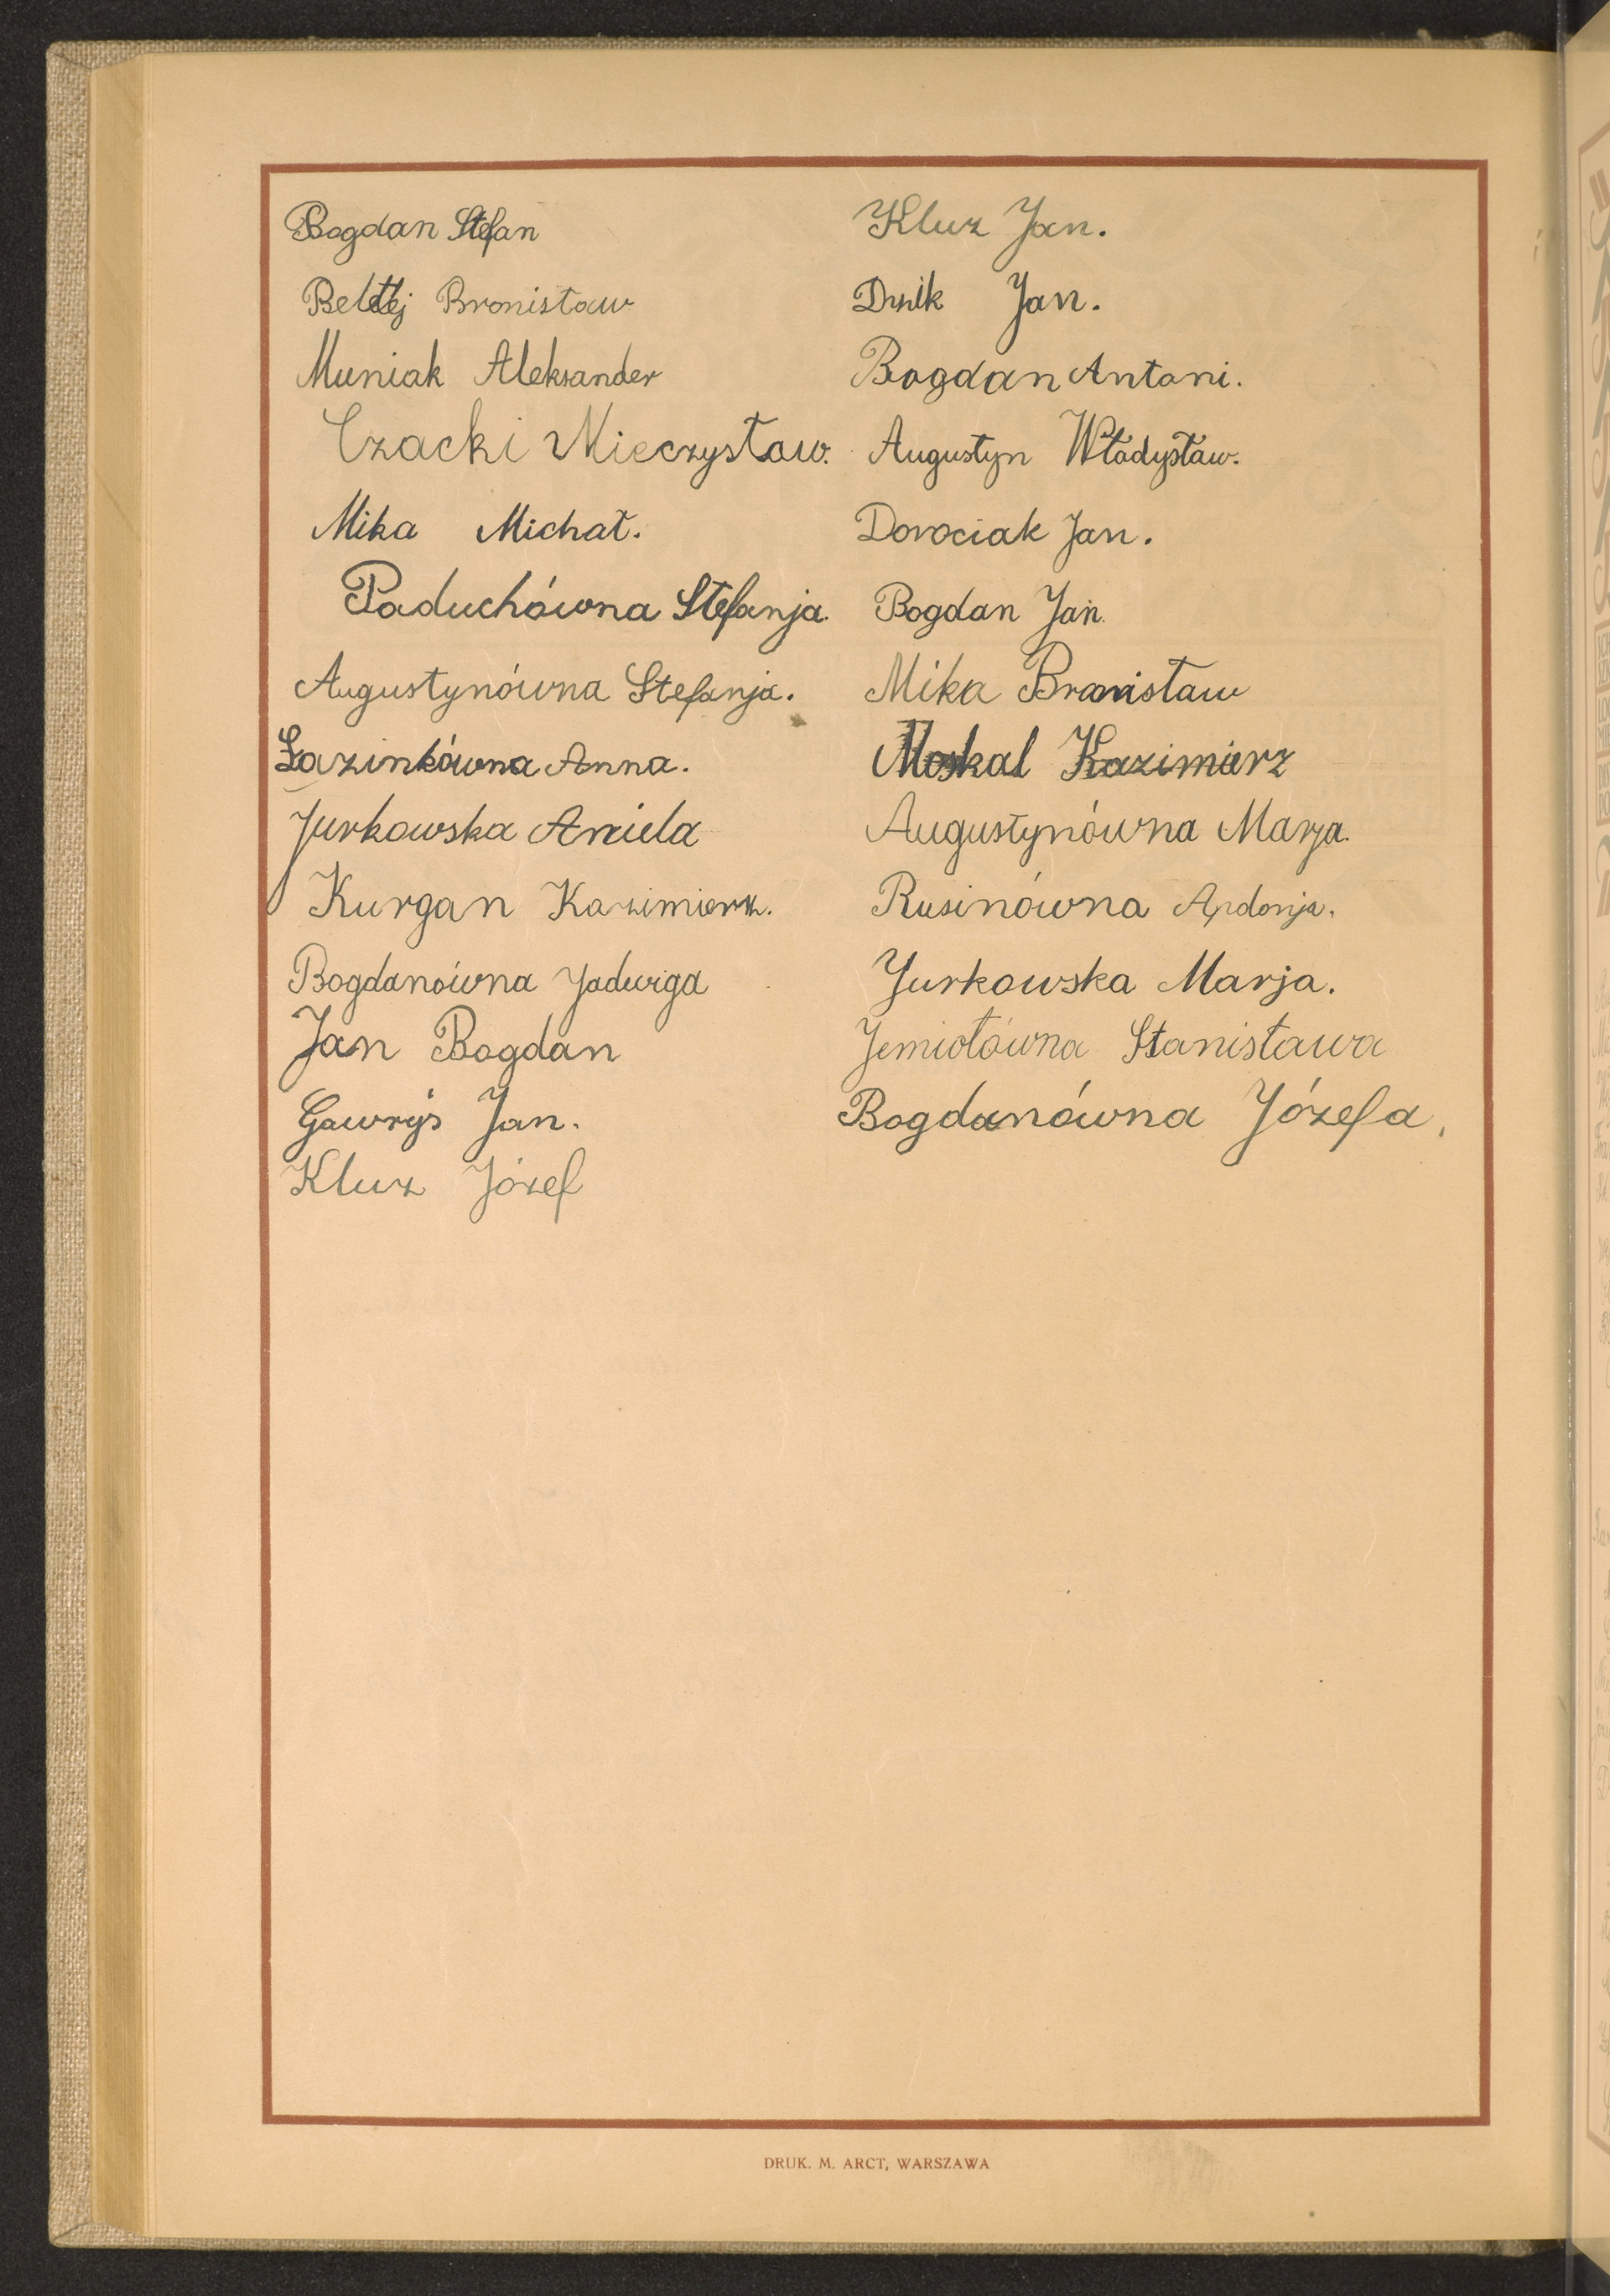 Bogdan Stefan
Bronisław
Muniak Aleksander
Czacki Mieczysław.
Mika Michał.
Paduchówna Stefanja.
Augustynówna Stefanja.
Łazinkówna Anna.
Jurkowska Aniela
Kurgan Kazimierz.
Bogdanówna Jadwiga
Jan Bogdan
Gawryś Jan.
Kluz Józef
Kluz Jan.
Jan.
Bogdan Antoni.
Augustyn Władysław.
Dorociak Jan.
Bogdan Jan.
Mika Bronisław
Moskal Kazimierz
Augustynówna Marja.
Rusinówna Apolonja.
Jurkowska Marja.
Jemiołówna Stanisława
Bogdanówna Józefa.
DRUK. M. ARCT, WARSZAWA